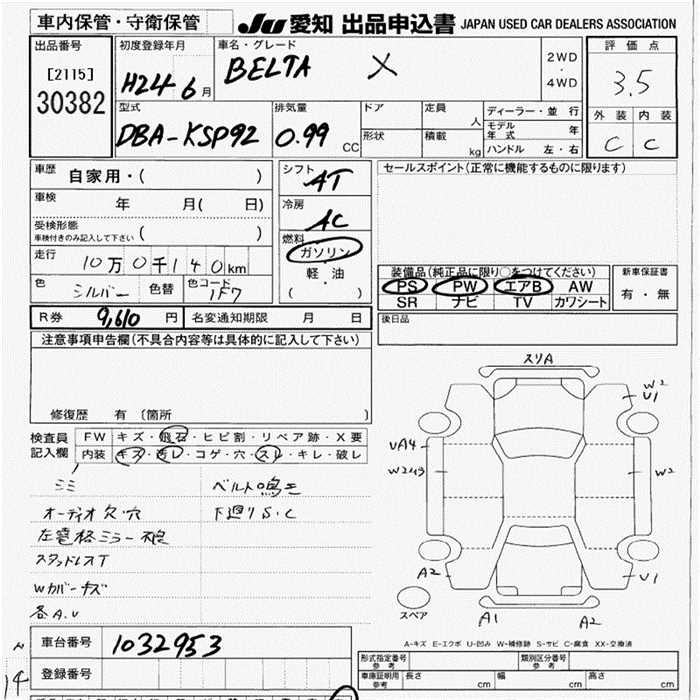 車内保管・守衛保管
JU 愛知 出品申込書 JAPAN USED CAR DEALERS ASSOCIATION
出品番号
[2115]
30382
初度登録年月
H24 6月
車名・グレード
BELTA X
2WD
・
4WD
評価点
3.5
外装 内装
C C
型式
DBA-KSP92
排気量
0.99 CC
ドア
形状
定員 人
積載 kg
ディーラー・並行
モデル年式 年
ハンドル 左・右
車歴 自家用・( )
車検 年 月( 日)
受検形態
車検付きのみ記入して下さい ( )
走行 10万0千140km
色 シルバー 色替 色コード 1F7
シフト AT
冷房 AC
燃料
ガソリン
軽・油
( ・ )
セールスポイント(正常に機能するものに限ります)
装備品(純正品に限り○をつけてください)
PS PW エアB AW
SR ナビ TV カワシート
新車保証書
有・無
R券 9,610 円 名変通知期限 月 日
後日品
注意事項申告欄(不具合内容等は具体的に記入して下さい)
修復歴 有 (箇所
検査員
記入欄
FW キズ・飛石・ヒビ割・リペア跡・X要
内装 キズ・汚レ・コゲ・穴・スレ・キレ・破レ
ミミ ベルト鳴き
オーディオ欠・穴 下廻りS・C
スタッドレスT
Wカバーキズ
各A.U
スリA
W2
U1
UA4
W2
W2
A2
U1
スペア
A1
A2
A-キズ E-エクボ U-凹み W-補修跡 S-サビ C-腐食 XX-交換済
車台番号 1032953
登録番号
形式指定番号 参考
類別区分番号 参考
車庫証明用 参考 長さ cm 幅 cm 高さ cm